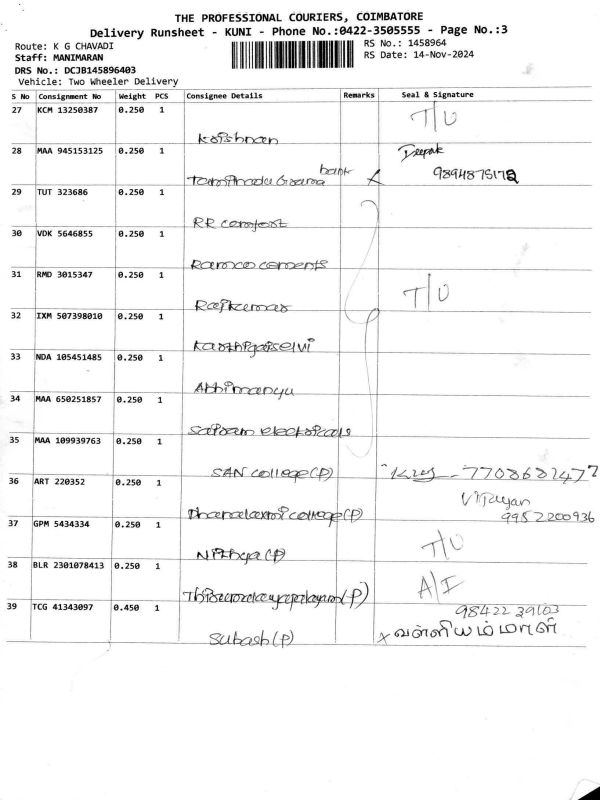 THE PROFESSIONAL COURIERS, COIMBATORE
Delivery Runsheet - KUNI - Phone No.:0422-3505555 - Page No.:3
Route: K G CHAVADI
RS No.: 1458964
Staff: MANIMARAN
RS Date: 14-Nov-2024
DRS No.: DCJB145896403
Vehicle: Two Wheeler Delivery
S No Consignment No Weight PCS Consignee Details Remarks Seal & Signature
27 KCM 13250387 0.250 1 T/U
Krishnan
28 MAA 945153125 0.250 1 Deepak
Tamilnadu Grama bank 9894875172
29 TUT 323686 0.250 1
RR comfort
30 VDK 5646855 0.250 1
Ramco cements
31 RMD 3015347 0.250 1 T/U
Rajkumar
32 IXM 507398010 0.250 1
Karthigaiselvi
33 NDA 105451485 0.250 1
Abhimanyu
34 MAA 650251857 0.250 1
Sairam electricals
35 MAA 109939763 0.250 1
SAN college (P) 7708682477
36 ART 220352 0.250 1 Vijayan
Dhanalaxmi college (P) 9952200936
37 GPM 5434334 0.250 1 T/U
Nithya (P)
38 BLR 2301078413 0.250 1 A/I
Thirumalayapalayam (P)
39 TCG 41343097 0.450 1 98422 39103
Subash (P) x வள்ளியம்மாள்